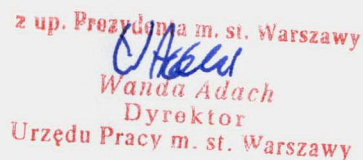 z up. Prezydenta m. st. Warszawy
Wanda Adach
Dyrektor
Urzędu Pracy m. st. Warszawy